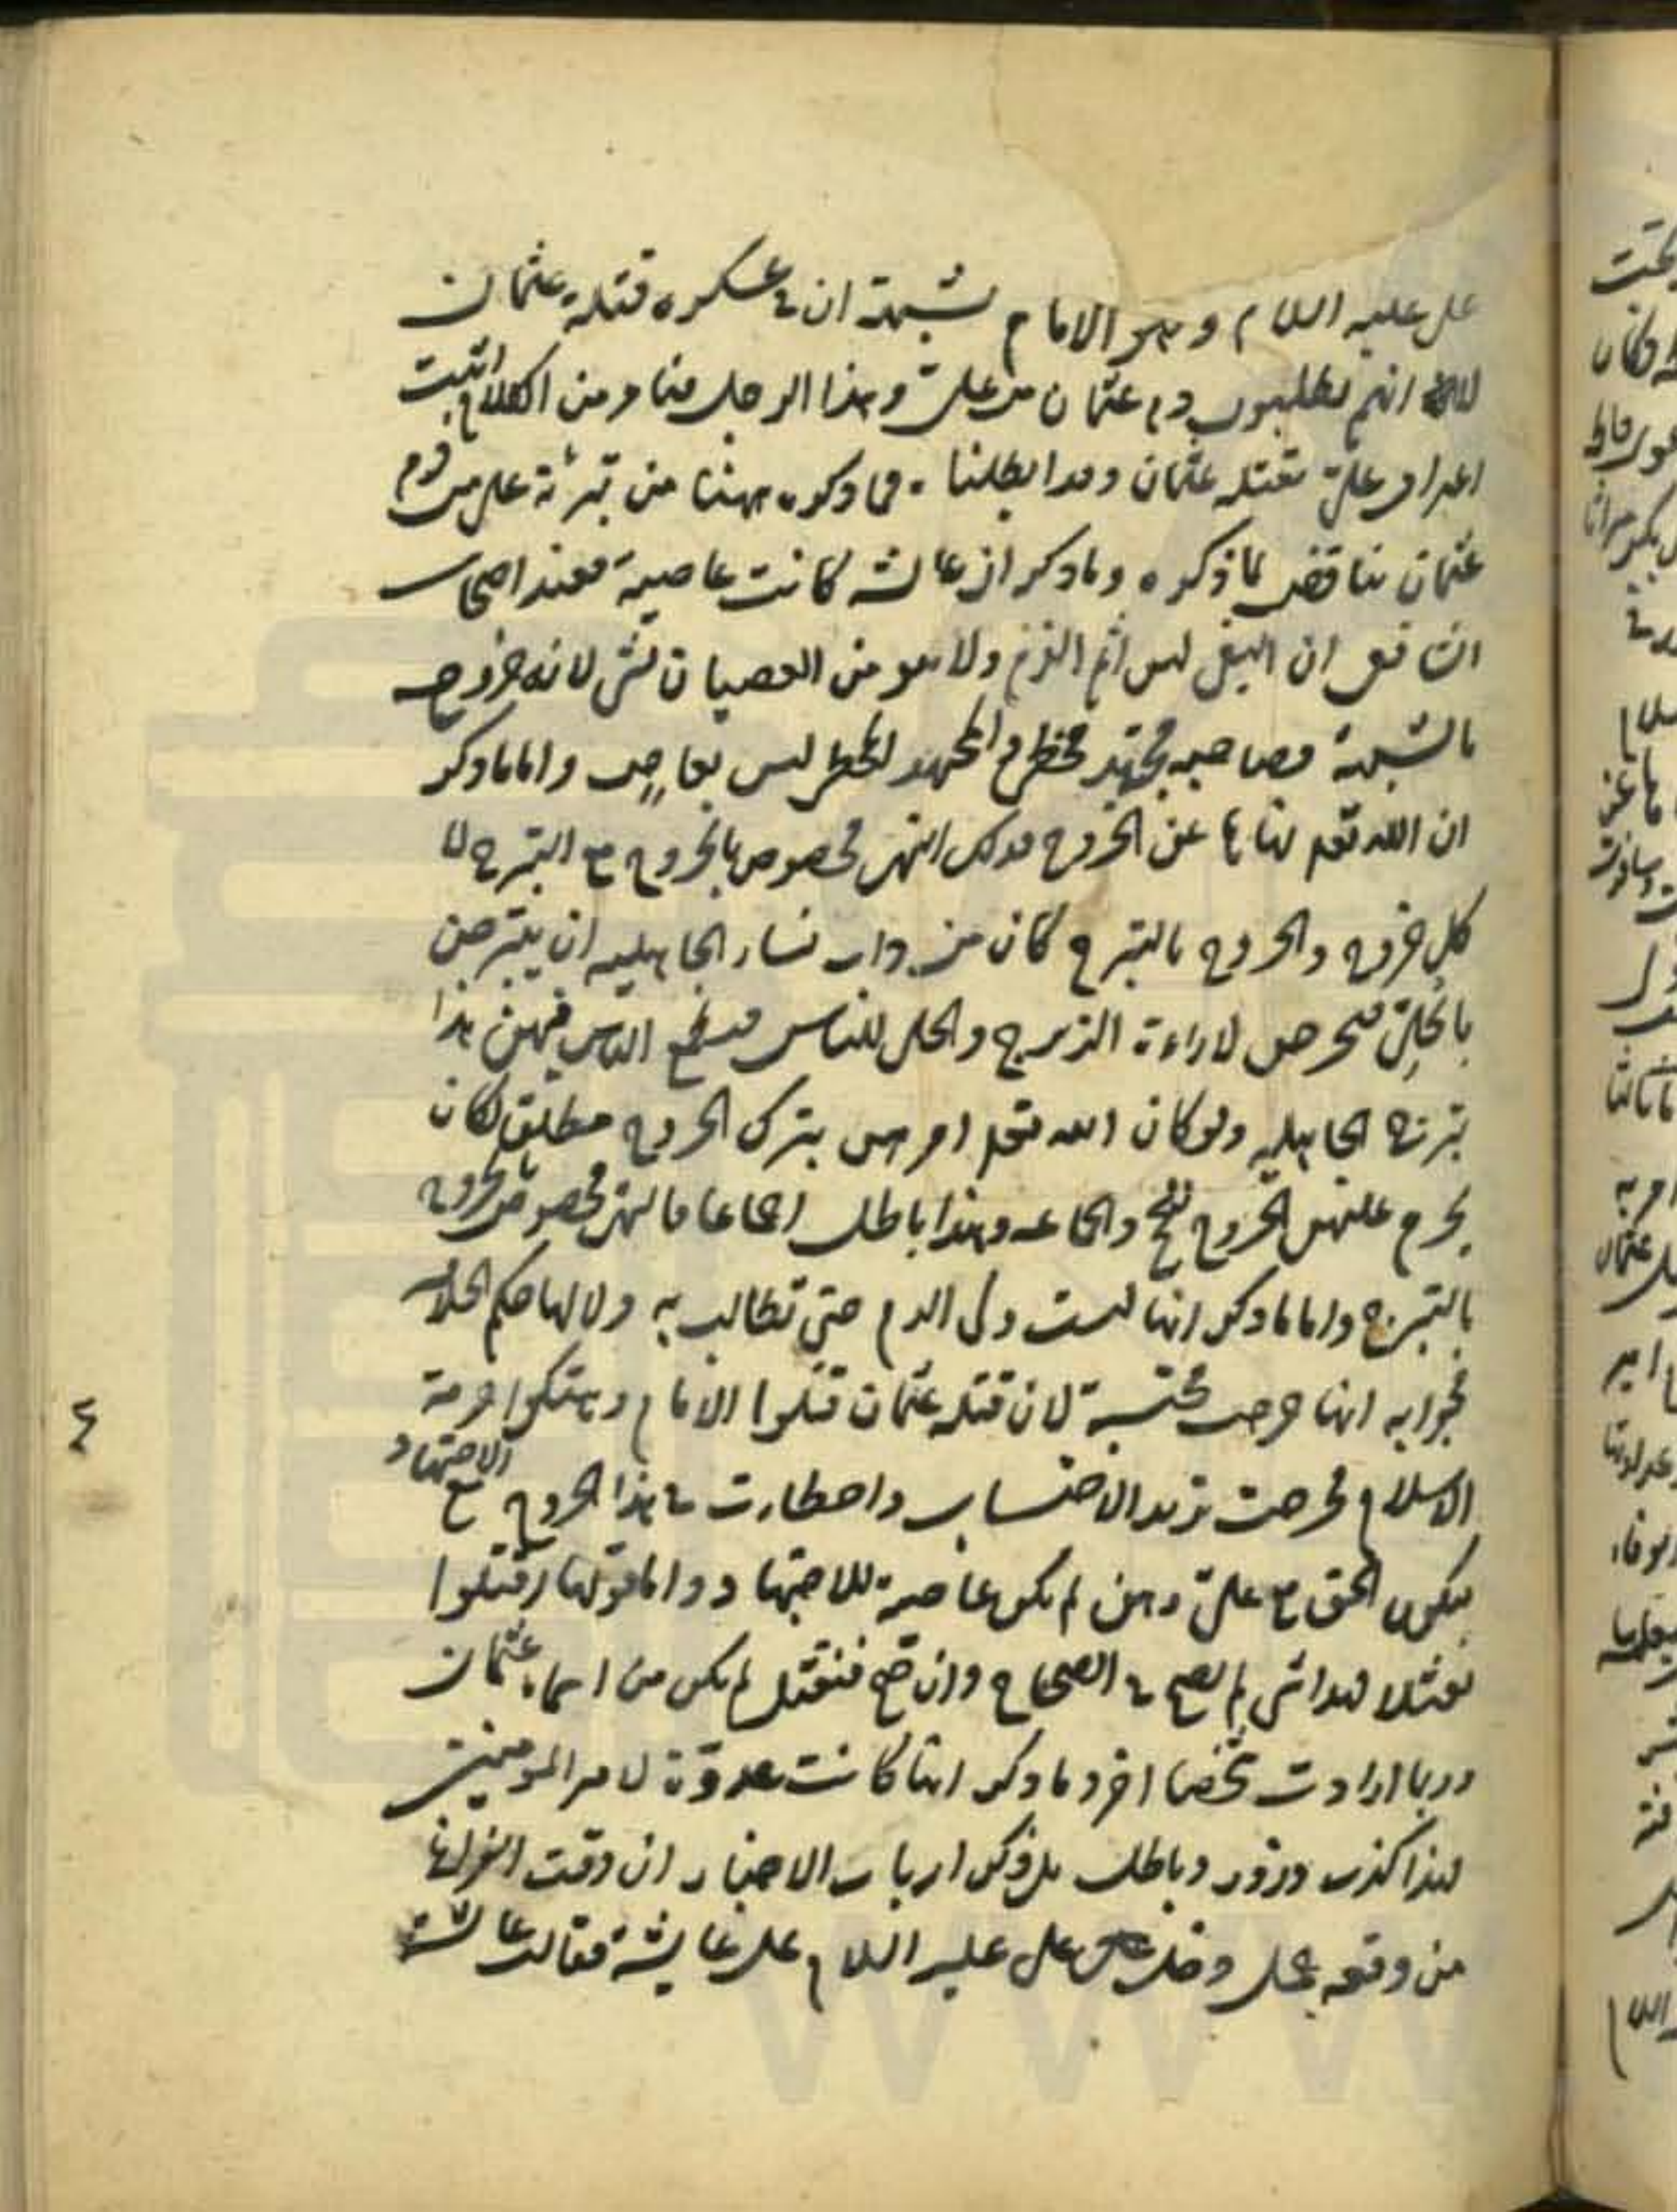 على عليه السلام وهو الامام لشبهة ان في عسكره قتلة عثمان
لا انهم يطلبون دم عثمان من علي وهذا الرجل من اول الكلام اثبت
اعتراف علي بقتله عثمان وقد ابطلنا فما ذكره ههنا من تبرئة علي من دم
عثمان مناقض لما ذكره وما ذكر ان عائشة كانت عاصية فعند اصحاب
الشافعي ان البغي ليس اثم الذم ولا هو من العصيان لشي لانه خروج
بالشبهة وصاحبه مجتهد مخطئ والمجتهد المخطئ ليس بعاص واما ما ذكر
ان الله تعالى نهاها عن الخروج فذلك النهي مخصوص بالخروج مع التبرج لا
كل خروج والخروج بالتبرج كان من داب نساء الجاهلية ان يتبرجن
بالحلي فيخرجن لاراءة الزبرج والحلي للناس فيطمع الناس فيهن هذا
تبرج الجاهلية ولو كان الله تعالى امرهن بترك الخروج مطلقا لكان
يحرم عليهن الخروج للحج والجماعه وهذا باطل اجماعا فالنهي مخصوص بالخروج
بالتبرج واما ما ذكر انها ليست ولى الدم حتى تطالب به ولا لها حكم الخلافة
فجوابه انها خرجت محتسبة لان قتلة عثمان قتلوا الامام وهتكوا حرمة
الاسلام فخرجت تريد الاحتساب واخطأت في هذا الخروج مع الاجتهاد
فيكون الحق مع علي وهي لم يكن عاصية للاجتهاد واما قولها اقتلوا
نعثلا فهذا شي لم يصح في الصحاح وان صح فنعثل لم يكن من اسماء عثمان
وربما ارادت شخصا اخر وما ذكر انها كانت عدوة لامير المومنين
فهذا كذب وزور وباطل بل ذكر ارباب الاخبار ان وقت انصرافها
من وقعه جمل دخل على عليه السلام على عايشة فقالت عائشة